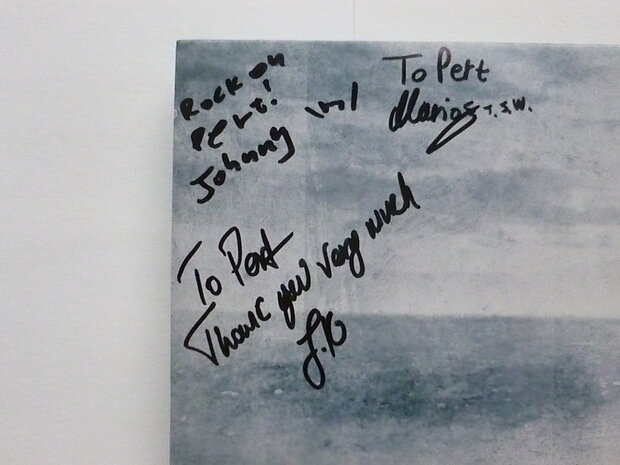 Rock on
Pert!
Johnny \m/
To Pert
Marios T.S.W.
To Pert
Thank you very much